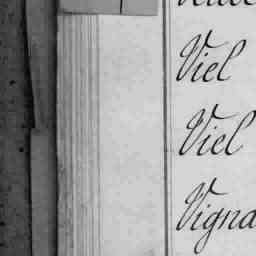 Viel
Viel
Vigna